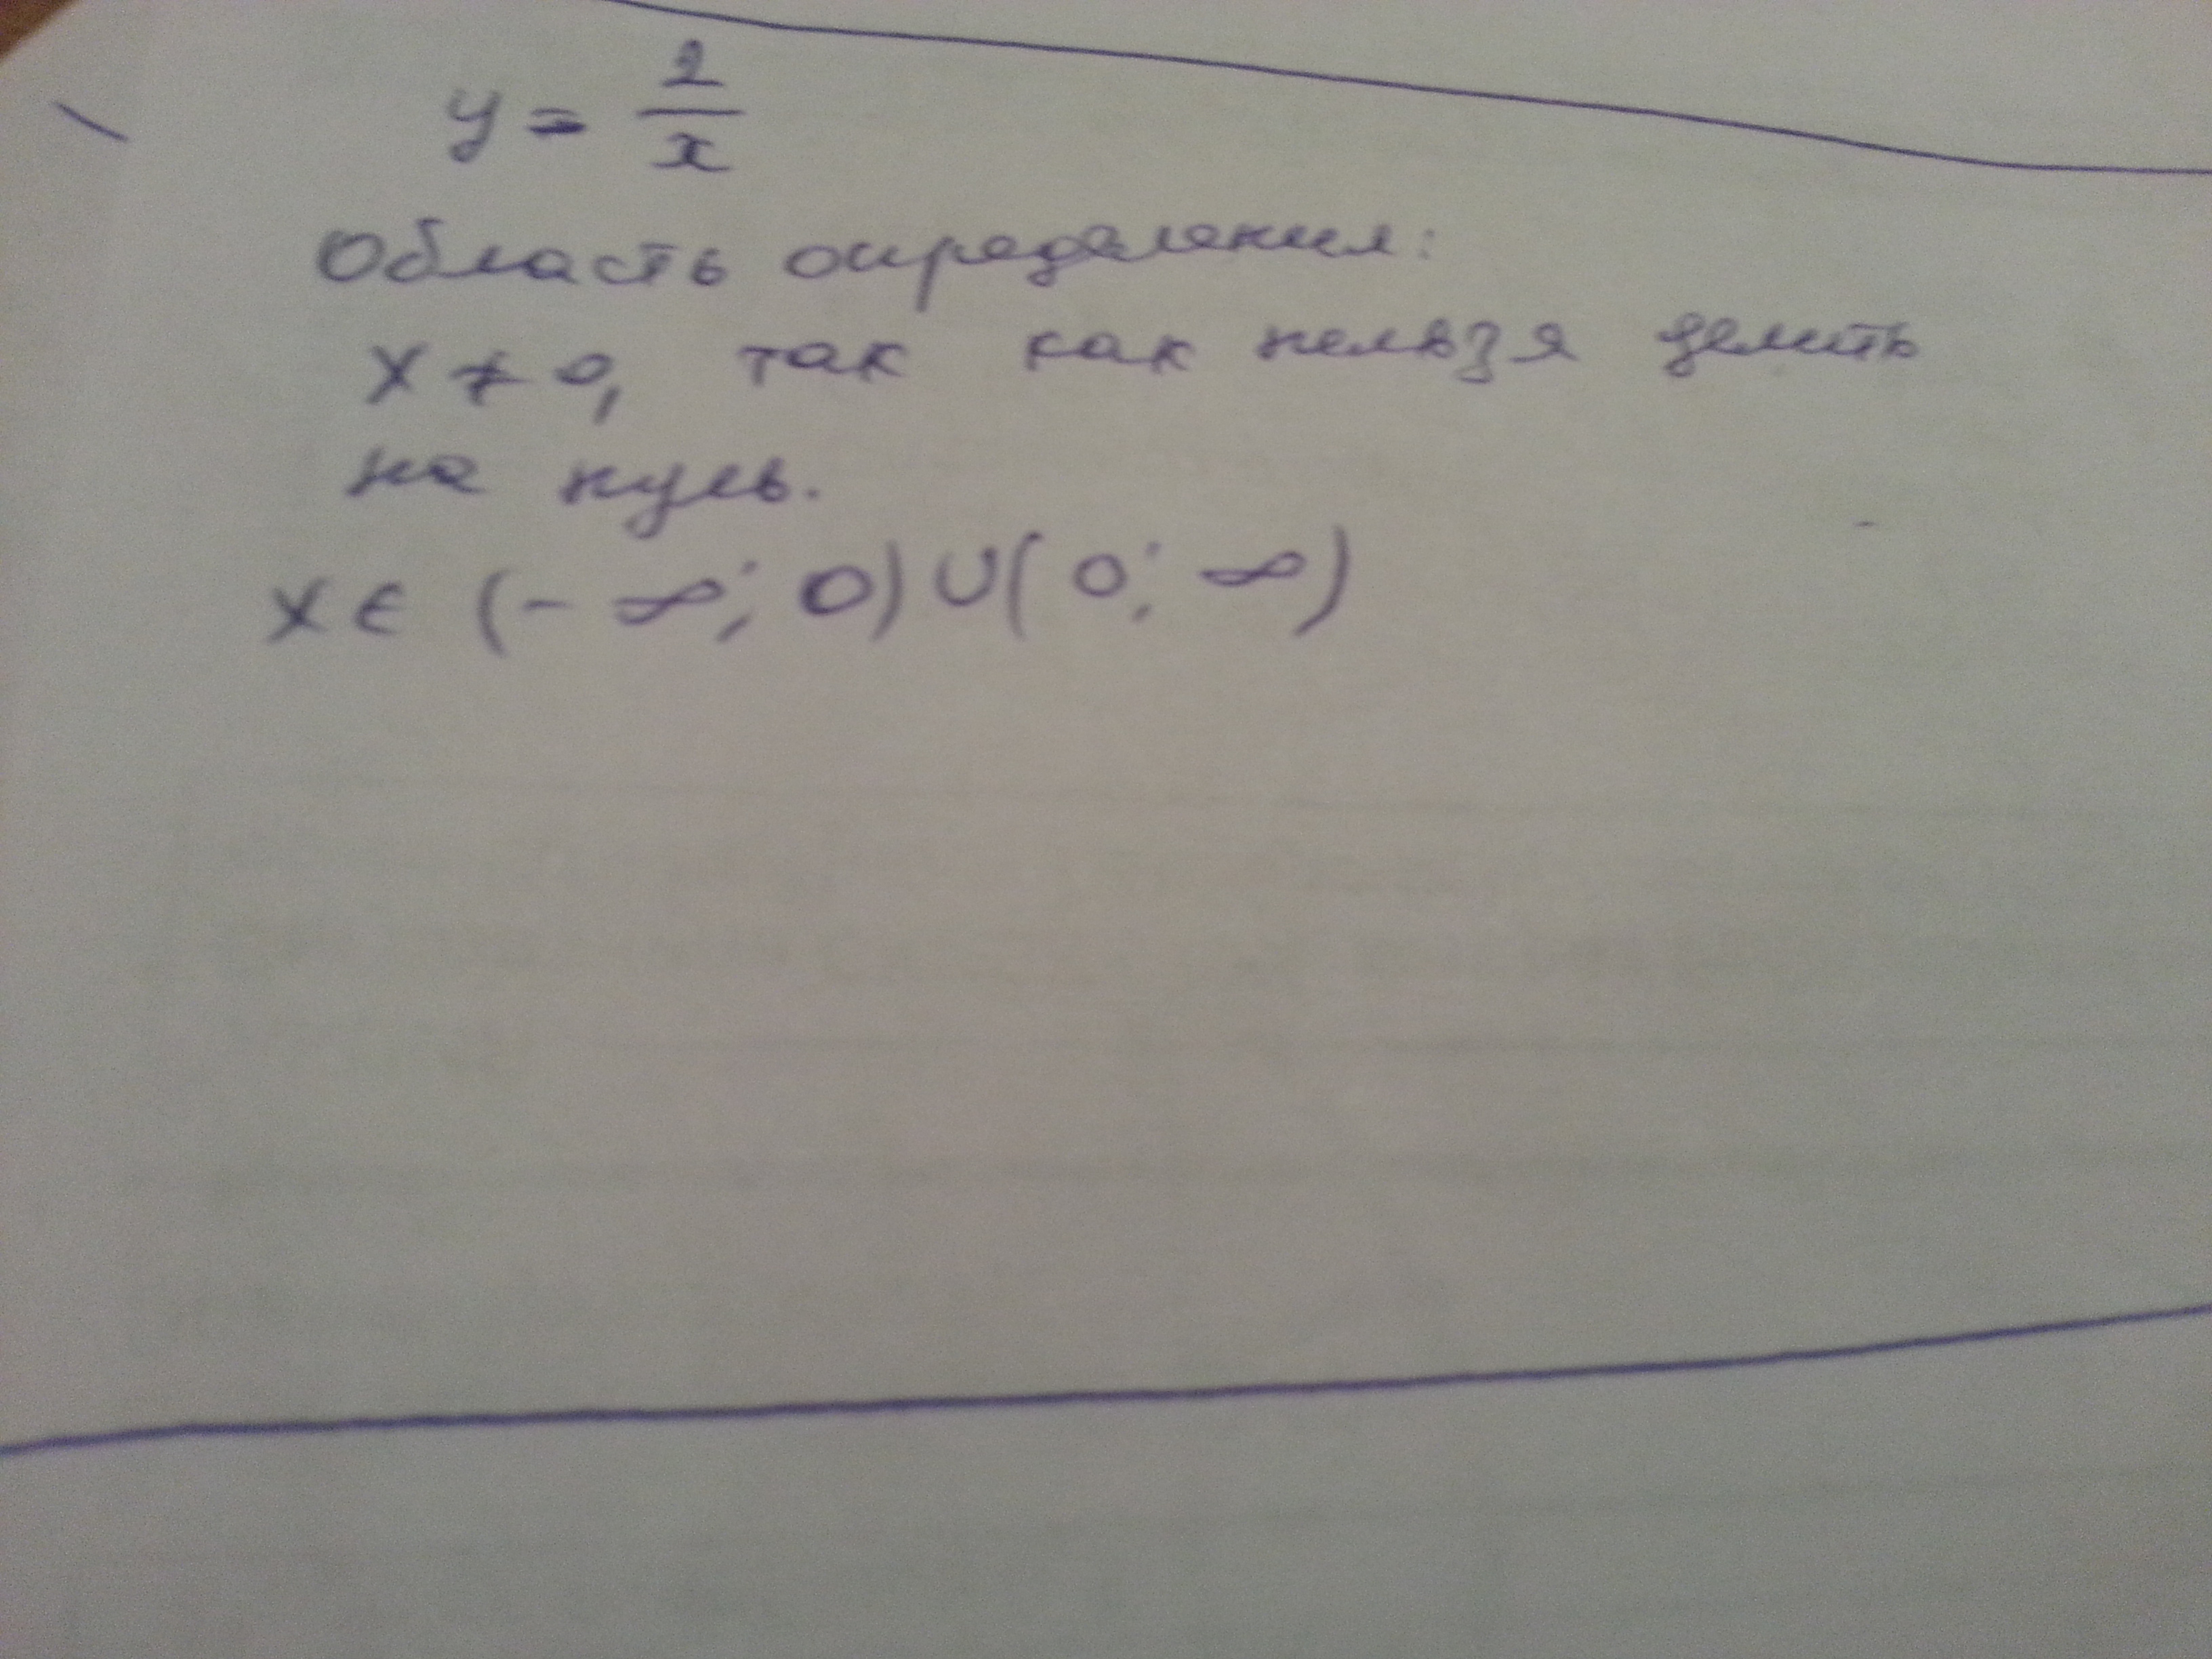 y = 2/x
Область определения:
x ≠ 0, так как нельзя делить
на нуль.
x ∈ (- ∞; 0) ∪ (0; ∞)